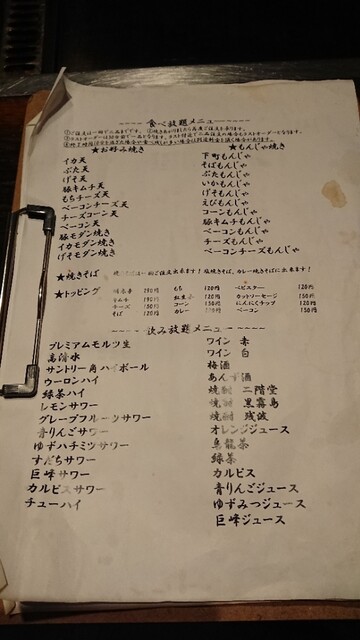 食べ放題メニュー
★お好み焼き
イカ天
ぶた天
げそ天
豚キムチ天
もちチーズ天
ベーコンチーズ天
チーズコーン天
ベーコン天
豚モダン焼き
イカモダン焼き
げそモダン焼き
★もんじゃ焼き
下町もんじゃ
そばもんじゃ
ぶたもんじゃ
いかもんじゃ
げそもんじゃ
えびもんじゃ
コーンもんじゃ
豚キムチもんじゃ
ベーコンもんじゃ
チーズもんじゃ
ベーコンチーズもんじゃ
★焼きそば ご注文出来ます!塩焼きそば、カレー焼きそばに出来ます!
★トッピング
190円 もち 120円 ベビスター 120円
190円 紅生姜 120円 カットソーセージ 150円
チーズ 150円 コーン 150円 にんにくチップ 120円
そば 120円 カレー ベーコン 150円
飲み放題メニュー
プレミアムモルツ生
高清水
サントリー角ハイボール
ウーロンハイ
緑茶ハイ
レモンサワー
グレープフルーツサワー
青りんごサワー
ゆずハチミツサワー
すだちサワー
巨峰サワー
カルピスサワー
チューハイ
ワイン 赤
ワイン 白
梅酒
あんず酒
焼酎 二階堂
焼酎 黒霧島
焼酎 残波
オレンジジュース
烏龍茶
緑茶
カルピス
青りんごジュース
ゆずみつジュース
巨峰ジュース